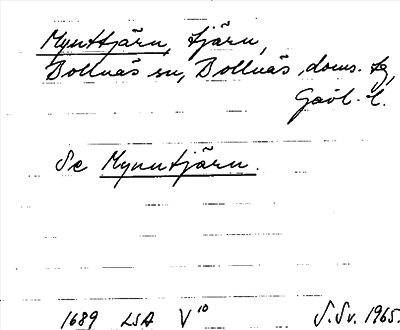 Mynttjärn, tjärn,
Bollnäs sn, Bollnäs, doms. tg,
Gävl. l.
Se Mynntjärn.
1689 LSA V¹⁰ S. Sv. 1965.